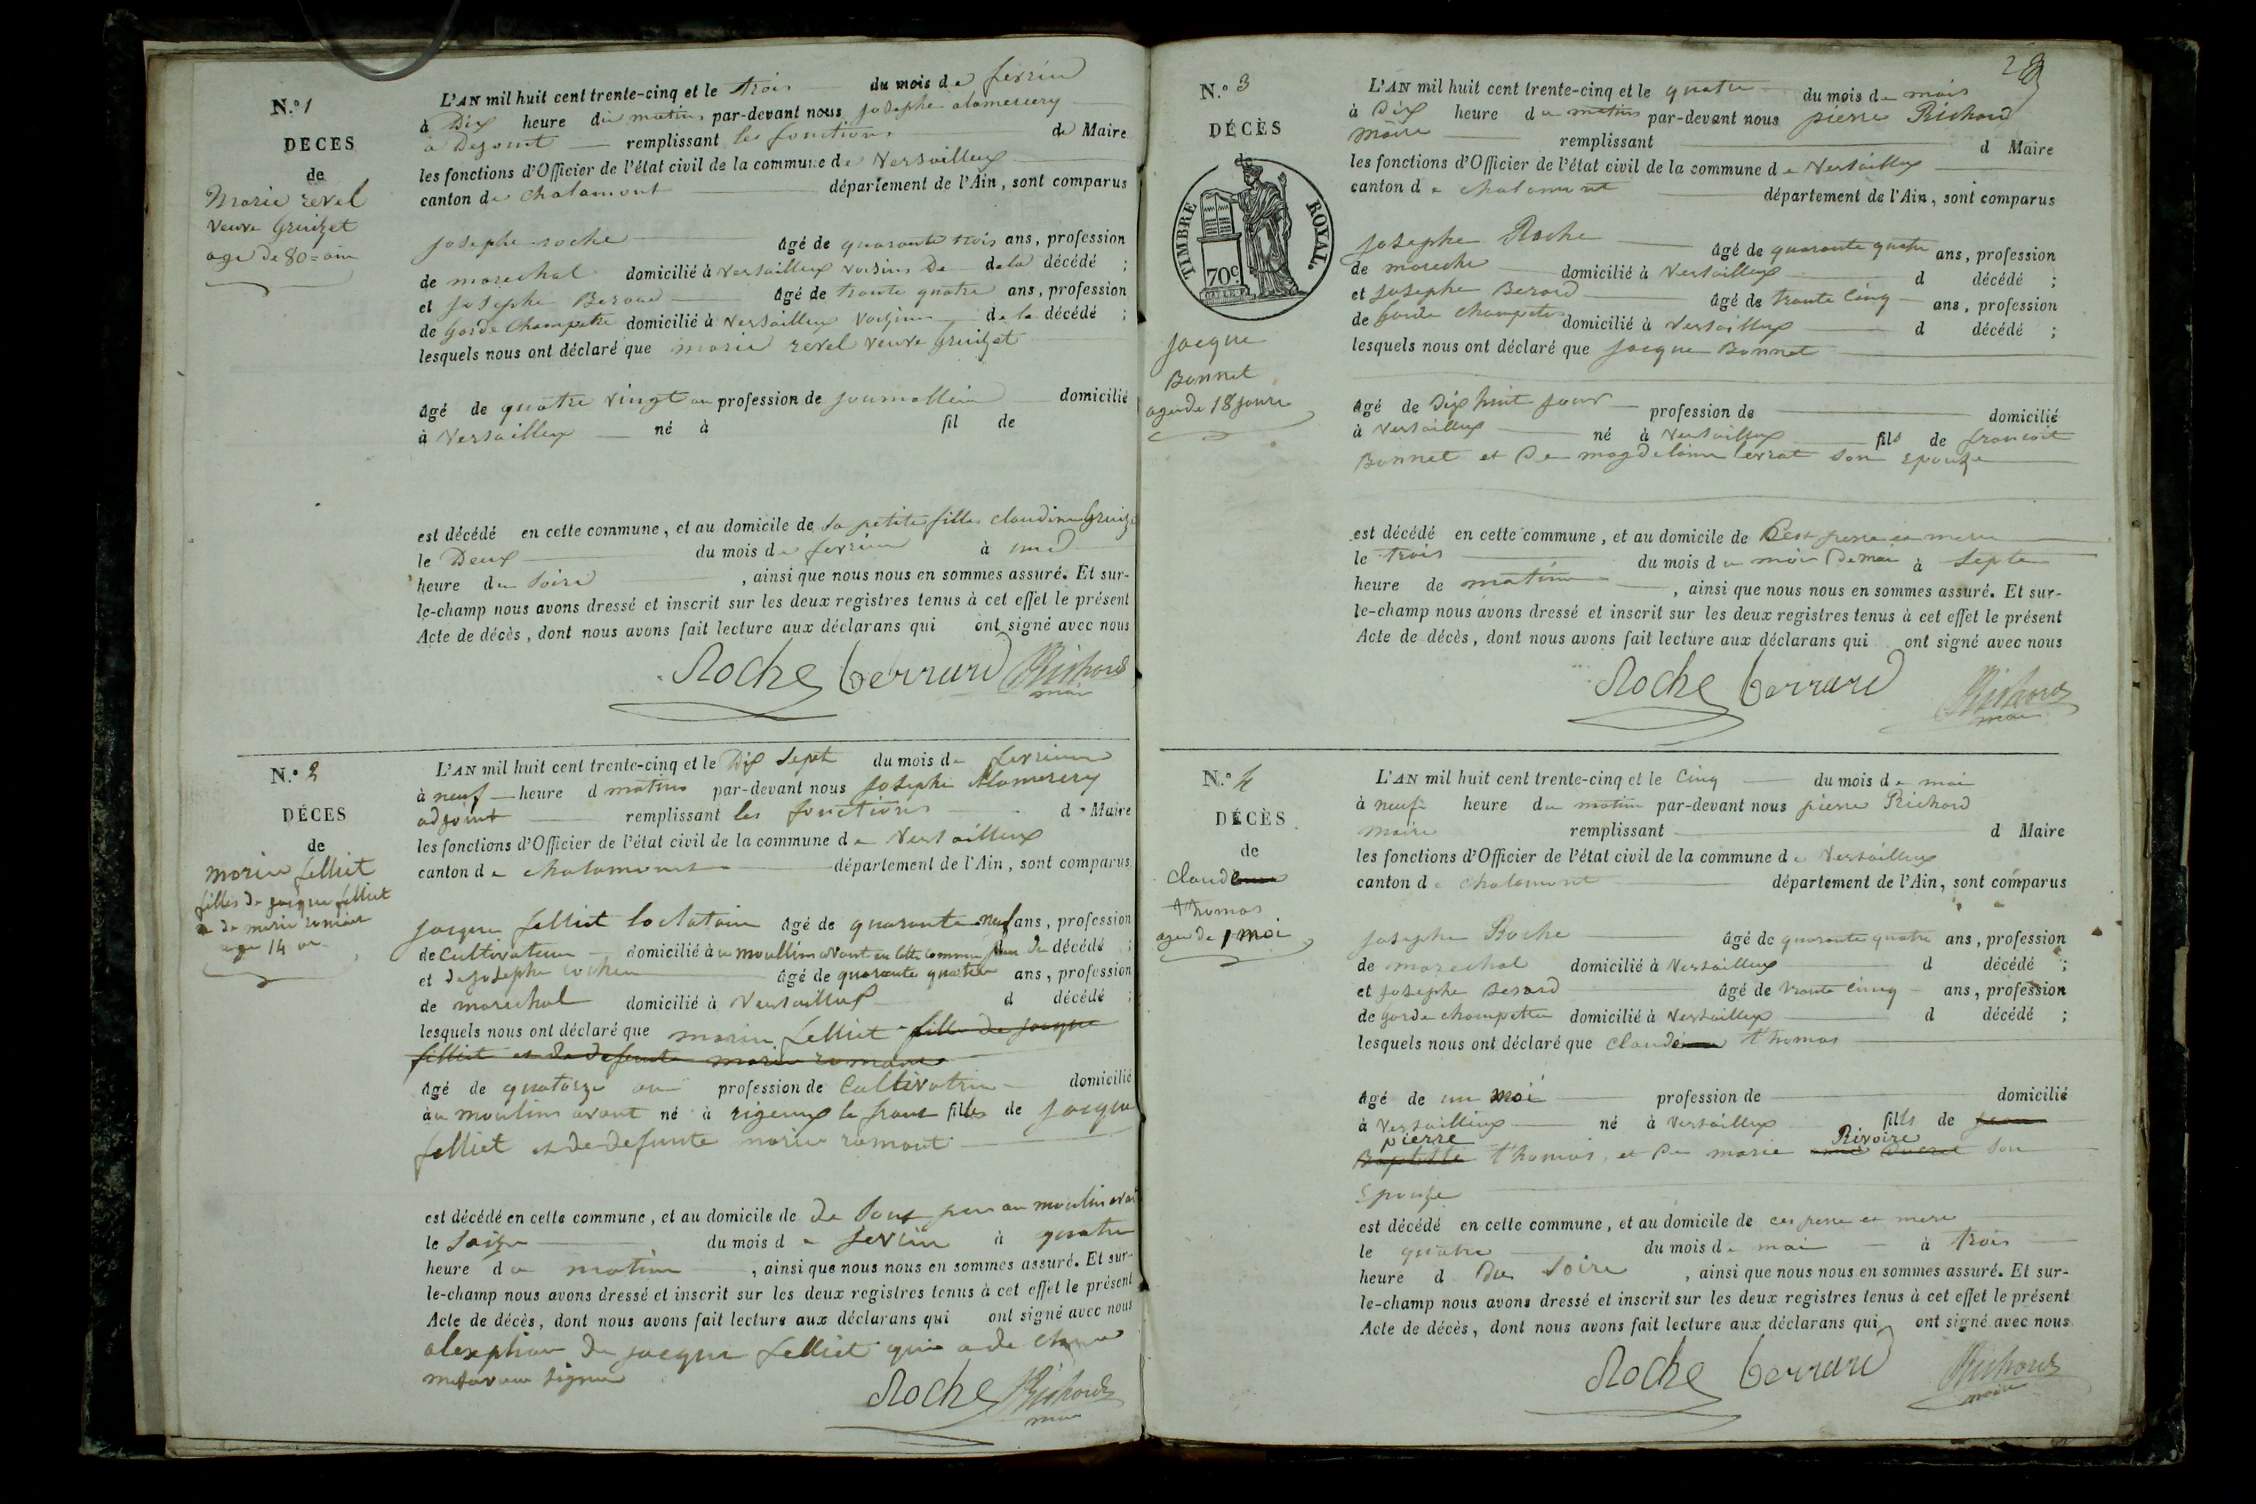 N.º 1
DECES
de
Marie revel
veuve Gruizet
age de 80 = ans
L'AN mil huit cent trente-cinq et le trois du mois de fevrier
à Dix heure du matin par-devant nous josephe alamercery
a Dejoint remplissant les fonctions de Maire
les fonctions d'Officier de l'état civil de la commune de Versailleux
canton de chalamont département de l'Ain, sont comparus
josephe roche âgé de quarante trois ans, profession
de marechal domicilié à versailleux voisins De de la décédé ;
et josephe Beroud âgé de trante quatre ans, profession
de garde champetre domicilié à versailleux voisin de la décédé ;
lesquels nous ont déclaré que marie revel veuve Gruizet
âgé de quatre vingt an profession de journalliere domicilié
à Versailleux né à fil de
est décédé en cette commune, et au domicile de sa petite filles claudine
le Deux du mois de fevrier à une
heure du soire , ainsi que nous nous en sommes assuré. Et sur-
le-champ nous avons dressé et inscrit sur les deux registres tenus à cet effet le présent
Acte de décès, dont nous avons fait lecture aux déclarans qui ont signé avec nous
Roche berrard Richard
maire
N.º 2
DÉCES
de
marie felliet
filles de jacque felliet
e de marie romant
age 14 an
L'AN mil huit cent trente-cinq et le Dix sept du mois de fevrier
à neuf heure d matins par-devant nous josephe Alamercery
adjoint remplissant les fonctions d Maire
les fonctions d'Officier de l'état civil de la commune de Versailleux
canton de chalamont département de l'Ain, sont comparus
jacque felliet locataire âgé de quarante neuf ans, profession
de Cultivateur domicilié à au moullin avant en cette commune pere de décédé ;
et de josephe rochex âgé de quarante quatre ans, profession
de marechal domicilié à Versailleux d décédé ;
lesquels nous ont déclaré que marie felliet fille de jacque
felliet et de defunte marie romans
âgé de quatorze ans profession de Cultivatrice domicilié
à au moulins avant né à rigneux le franc filles de jacque
felliet et de defunte marie romant
est décédé en cette commune, et au domicile de de sont pere au moulin avant
le saize du mois de fevrier à quatre
heure du matin , ainsi que nous nous en sommes assuré. Et sur-
le-champ nous avons dressé et inscrit sur les deux registres tenus à cet effet le présent
Acte de décès, dont nous avons fait lecture aux déclarans qui ont signé avec nous
alexption de jacque felliet qui a de
signer
Roche Richard
maire
N.º 3
DÉCÈS
de
TIMBRE ROYAL.
70c.
jacque
Bonnet
age de 18 jours
L'AN mil huit cent trente-cinq et le quatre du mois de mais
à Dix heure du matin par-devant nous pierre Richard
maire remplissant d Maire
les fonctions d'Officier de l'état civil de la commune de Versailleux
canton de chalamont département de l'Ain, sont comparus
josephe Roche âgé de quarante quatre ans, profession
de mareche domicilié à Versailleux d décédé ;
et josephe Berard âgé de trante cinq ans, profession
de garde champetre domicilié à Versailleux d décédé ;
lesquels nous ont déclaré que jacque Bonnet
âgé de Dix huit jour profession de domicilié
à versailleux né à Versailleux fils de francoit
Bonnet et de magdelaine levrat son epouze
est décédé en cette commune, et au domicile de pere ea mere
le trois du mois du moi De mai à septe
heure de matin , ainsi que nous nous en sommes assuré. Et sur-
le-champ nous avons dressé et inscrit sur les deux registres tenus à cet effet le présent
Acte de décès, dont nous avons fait lecture aux déclarans qui ont signé avec nous
Roche berrard Richard
maire
N.º 4
DÉCÈS
de
claude
thomas
age de 1 moi
L'AN mil huit cent trente-cinq et le Cinq du mois de mai
à neuf heure du matin par-devant nous pierre Richard
maire remplissant d Maire
les fonctions d'Officier de l'état civil de la commune de Versailleux
canton de chalamont département de l'Ain, sont comparus
josephe Roche âgé de quarante quatre ans, profession
de marechal domicilié à Versailleux d décédé ;
et josephe Berard âgé de trante cinq ans, profession
de garde champetre domicilié à Versailleux d décédé ;
lesquels nous ont déclaré que claude thomas
âgé de un moi profession de domicilié
à Versailleux né à Versailleux fils de jean
pierre Rivoire
Baptiste thomas et De marie Ducret son
Epouze
est décédé en cette commune, et au domicile de ces pere ea mere
le quatre du mois de mai à trois
heure d du soire , ainsi que nous nous en sommes assuré. Et sur-
le-champ nous avons dressé et inscrit sur les deux registres tenus à cet effet le présent
Acte de décès, dont nous avons fait lecture aux déclarans qui ont signé avec nous
Roche berrard Richard
maire